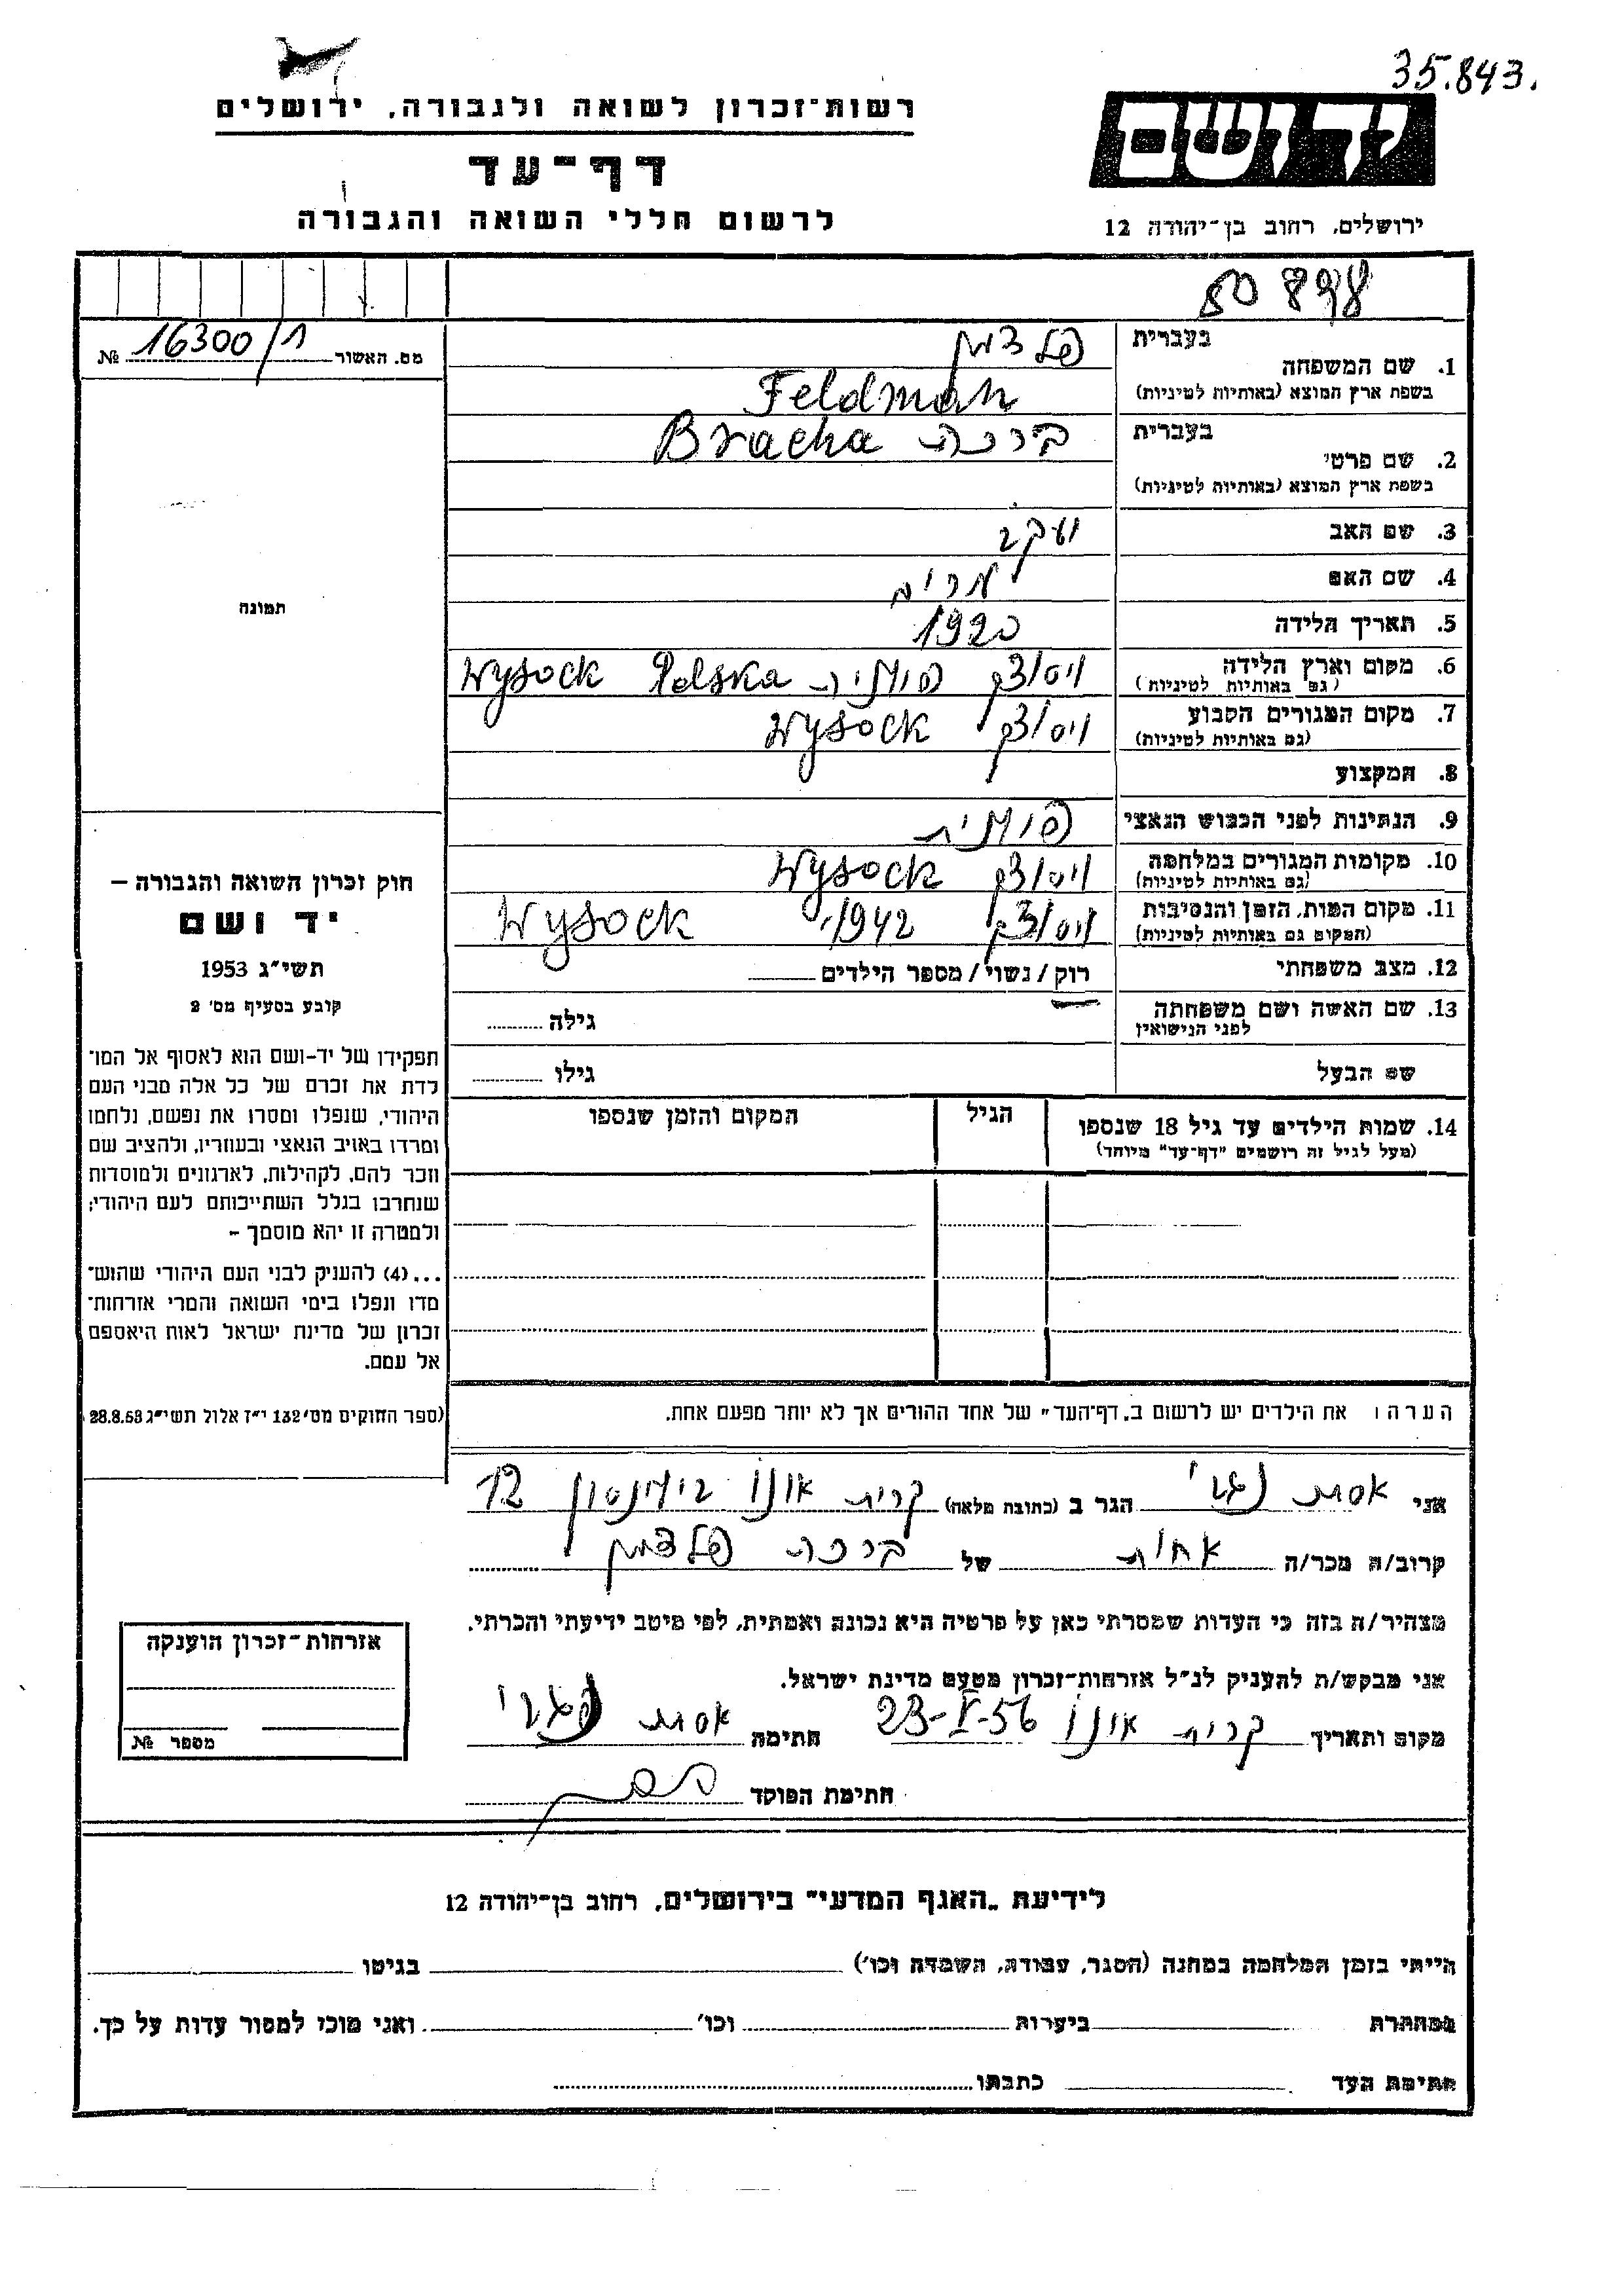 35.843.
רשות־זכרון לשואה ולגבורה, ירושלים
דף־עד
לרשום חללי השואה והגבורה
יד ושם
ירושלים, רחוב בן־יהודה 12
מס. האשור № 16300/1
1. שם המשפחה בעברית פלדמן
בשפת ארץ המוצא (באותיות לטיניות) Feldman
2. שם פרטי בעברית ברכה Bracha
בשפת ארץ המוצא (באותיות לטיניות)
3. שם האב יעקב
4. שם האם מרים
5. תאריך הלידה 1920
6. מקום וארץ הלידה (גם באותיות לטיניות) ויסוצק פולניה Wysock Polska
7. מקום המגורים הקבוע (גם באותיות לטיניות) ויסוצק Wysock
8. המקצוע
9. הנתינות לפני הכבוש הנאצי פולנית
10. מקומות המגורים במלחמה (גם באותיות לטיניות) ויסוצק Wysock
11. מקום המות, הזמן והנסיבות (המקום גם באותיות לטיניות) ויסוצק 1942 Wysock
12. מצב משפחתי רוק / נשוי / מספר הילדים
13. שם האשה ושם משפחתה לפני הנישואין גילה
שם הבעל גילו
14. שמות הילדים עד גיל 18 שנספו הגיל המקום והזמן שנספו
(מעל לגיל זה רושמים "דף־עד" מיוחד)
תמונה
חוק זכרון השואה והגבורה –
יד ושם
תשי״ג 1953
קובע בסעיף מס׳ 2
תפקידו של יד-ושם הוא לאסוף אל המו־
לדת את זכרם של כל אלה מבני העם
היהודי, שנפלו ומסרו את נפשם, נלחמו
ומרדו באויב הנאצי ובעוזריו, ולהציב שם
וזכר להם, לקהילות, לארגונים ולמוסדות
שנחרבו בגלל השתייכותם לעם היהודי;
ולמטרה זו יהא מוסמך –
...(4) להעניק לבני העם היהודי שהוש־
מדו ונפלו בימי השואה והמרי אזרחות־
זכרון של מדינת ישראל לאות היאספם
אל עמם.
(ספר החוקים מס׳ 132 י״ז אלול תשי״ג 28.8.53
הערה: את הילדים יש לרשום ב„דף־העד" של אחד ההורים אך לא יותר מפעם אחת.
אני אסתר הגר ב (כתובת מלאה) קרית אונו 12
קרוב/ה מכר/ה אחות של ברכה פלדמן
מצהיר/ה בזה כי העדות שמסרתי כאן על פרטיה היא נכונה ואמתית, לפי מיטב ידיעתי והכרתי.
אני מבקש/ת להעניק לנ״ל אזרחות־זכרון מטעם מדינת ישראל.
מקום ותאריך קרית אונו 23-V-56 חתימה אסתר
חתימת הפוקד
אזרחות־זכרון הוענקה
מספר №
לידיעת „האגף המדעי" בירושלים, רחוב בן־יהודה 12
הייתי בזמן המלחמה במחנה (הסגר, עבודה, השמדה וכו׳) בגיטו
במחתרת ביערות וכו׳ ואני מוכן למסור עדות על כך.
חתימת העד כתבתו